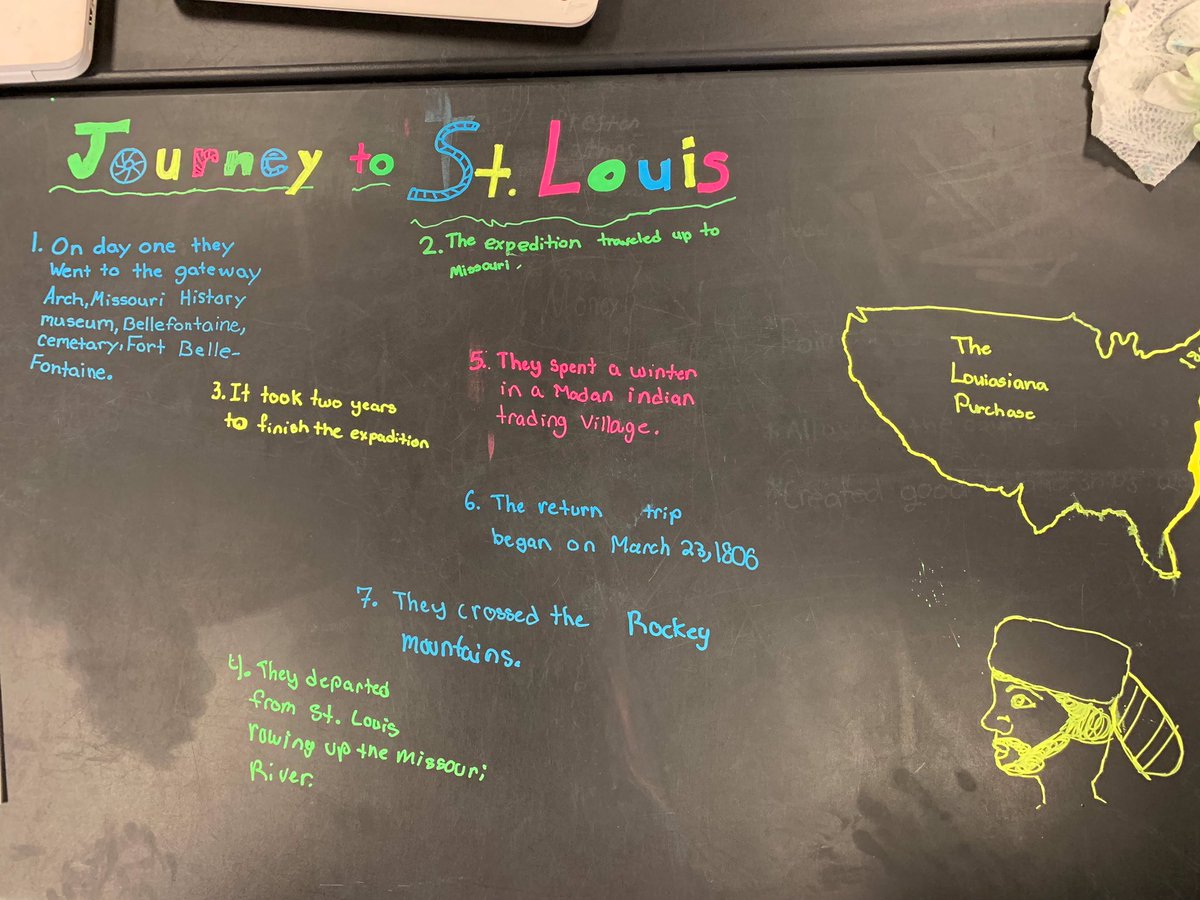 Journey to St. Louis
1. On day one they
Went to the gateway
Arch, Missouri History
museum, Bellefontaine,
cemetary, Fort Belle-
Fontaine.
2. The expedition traveled up to
Missouri.
3. It took two years
to finish the expadition
5. They spent a winter
in a Madan indian
trading Village.
6. The return trip
began on March 23, 1806
7. They crossed the Rockey
mountains.
4. They departed
from St. Louis
rowing up the Missouri
River.
The
Louiasiana
Purchase
Created good